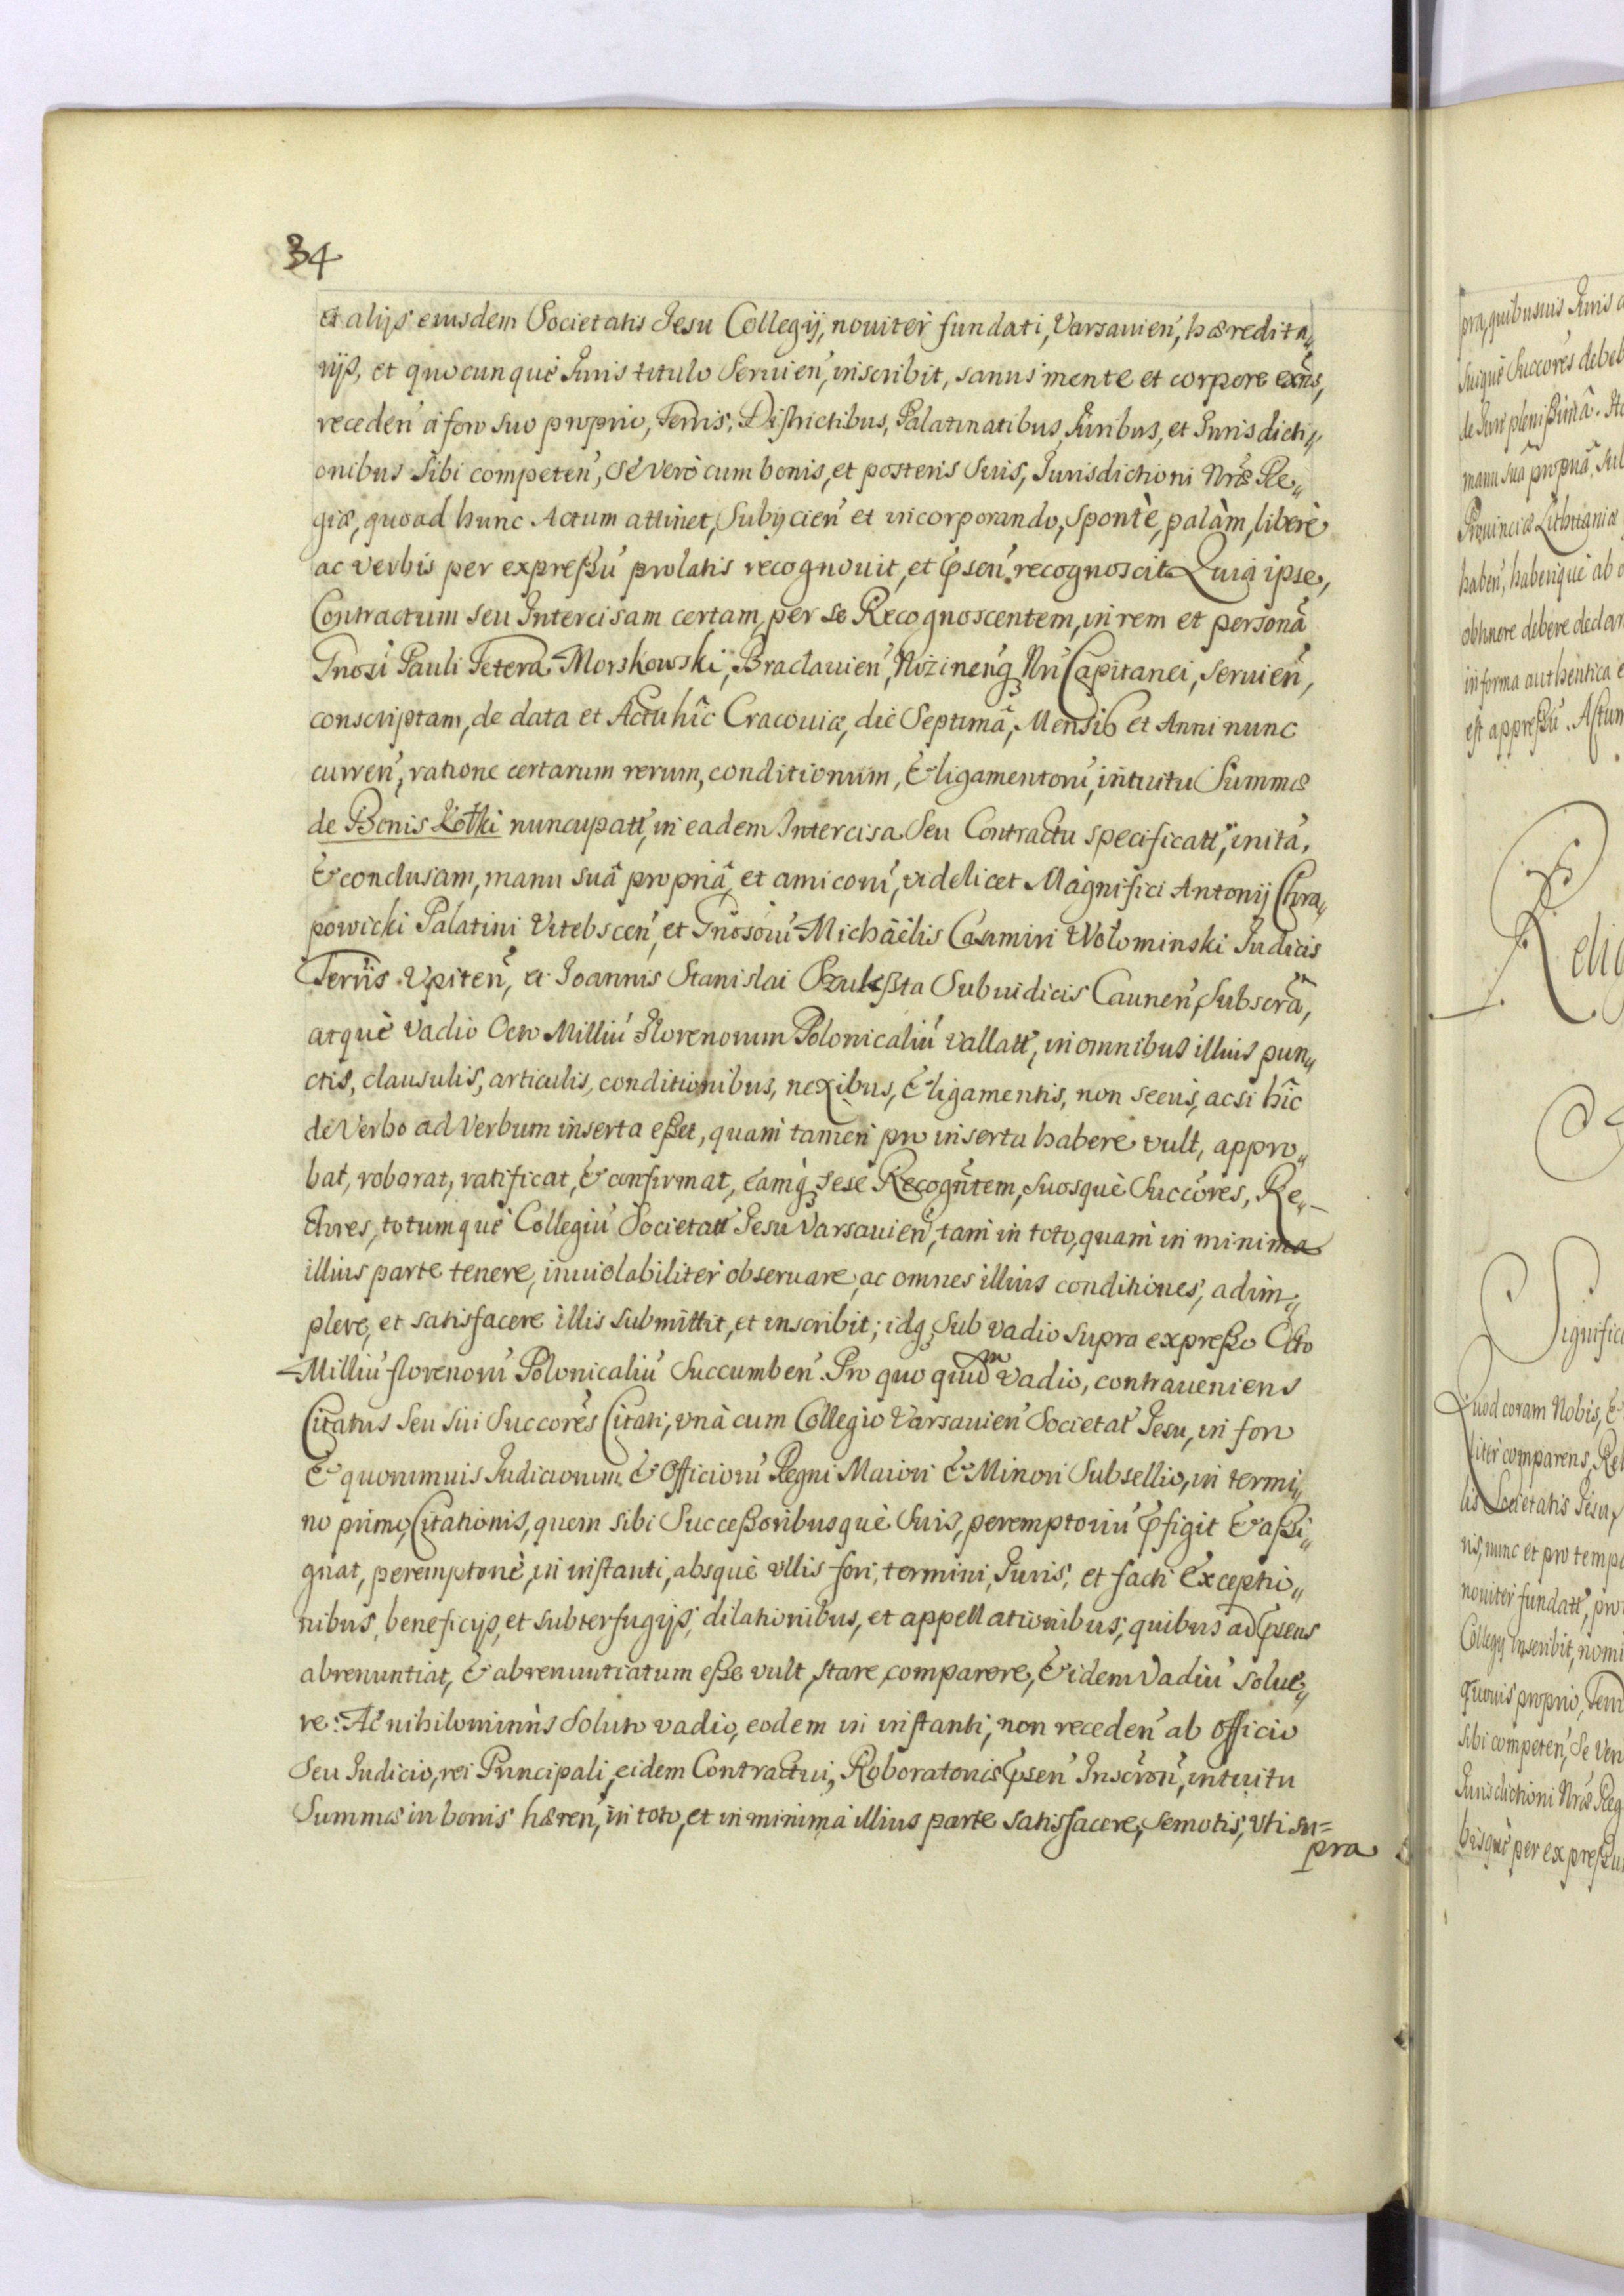 34
et alijs eiusdem Societatis Jesu Collegij, noviter fundati, Varsavien̄, hæredita„
rijs, et quocunquè Juris titulo Servien̄, inscribit, sanus mente et corpore exn̄s,
receden̄ à foro suo proprio, Terris, Districtibus, Palatinatibus, Juribus, et Jurisdicti„
onibus sibi competen̄, Sè verò cum bonis, et posteris suis, Jurisdictioni Nr̄æ Re„
giæ, quoad hunc Actum attinet, Subijcien̄ et incorporando, spontè, palàm, liberè
ac verbis per expreßū prolatis recognovit, et p̄sen̄. recognoscit. Quia ipse,
Contractum seu Intercisam certam, per se Recognoscentem, in rem et personā
Gnosi Pauli Tetera Morskowski, Braclavien̄, Nizinen̄q₃ Nr̄i Capitanei, servien̄,
conscriptam, de data et Actu hîc Cracoviæ, die Septimâ, Mensis et Anni nunc
curren̄, ratione certarum rerum, conditionum, & ligamentorū, intuitu Summæ
de Bonis Kotki nuncupatt̄, in eadem Intercisa Seu Contractu specificatt̄, initā,
& conclusam, manu suâ propriâ, et amicorū, videlicet Magnifici Antonij Chra„
powicki Palatini Vitebscen̄, et Gnosorū Michäelis Casimiri Wolominski Judicis
Terrīs Vpiten̄, et Joannis Stanislai Szukßta Subiudicis Caunen̄, Subscrā,
atquè vadio Octo Milliū Florenorum Polonicaliū vallatt̄, in omnibus illius pun„
ctis, clausulis, articulis, conditionibus, nexibus, & ligamentis, non secùs, ac si hîc
de Verbo ad Verbum inserta eßet, quam tamen pro inserta habere vult, appro„
bat, roborat, ratificat, & confirmat, eamq₃ sese Recogn̄tem, Suosquè Succōres, Re„
ctores, totumquè Collegiū Societatt̄ Jesu Varsavien̄, tam in toto, quam in minima
illius parte tenere, inviolabiliter observare, ac omnes illius conditiones, adim„
plere, et satisfacere illis submittit, et inscribit; idq₃ Sub vadio supra expreßo Octo
Milliū florenorū Polonicaliū Succumben̄. Pro quo quidm̄ vadio, contraveniens
Citatus seu sui Succorēs Citati, unà cum Collegio Varsavien̄ Societat̄ Jesu, in foro
& quorumvis Judiciorum & Officiorū Regni Maiori & Minori Subsellio, in termi„
no primo, Citationis, quem sibi Succeßoribusquè Suis, peremptoriū p̄figit & aßi„
gnat, peremptoriè, in instanti, absquè ullis fori, termini, Juris, et facti Exceptio„
nibus, beneficijs, et subterfugijs, dilationibus, et appellationibus, quibus ad p̄sens
abrenuntiat, & abrenuntiatum eße vult, stare, comparere, & idem Vadiū solve„
re: Ac nihilominùs Soluto vadio, eodem in instanti, non receden̄ ab Officio
Seu Judicio, rei Principali, eidem Contractui, Roboratoriis p̄sen̄ Inscrōn̄, intuitu
Summæ in bonis hæren̄, in toto, et in minima illius parte satisfacere, semotis, uti su=
pra
pra, quibusvis Juris
suiquè Succorēs debeb
de Jure plenißimâ.
manu suâ propriâ, sub
Provinciæ Lithuaniæ
haben̄, haberique ab o
obtinere debere declar
in forma authentica e
est appreßū. Actum
Relig
Signific
Quod coram Nobis, &
liter comparens, Rel
lis Societatis Jesu,
nis, nunc et pro tempo
noviter fundatt̄, pro
Collegij inscribit, nomi
quovis proprio, Terri
sibi competen̄, Se Vero
Jurisdictioni Nr̄æ Reg
bisquè per expreßum